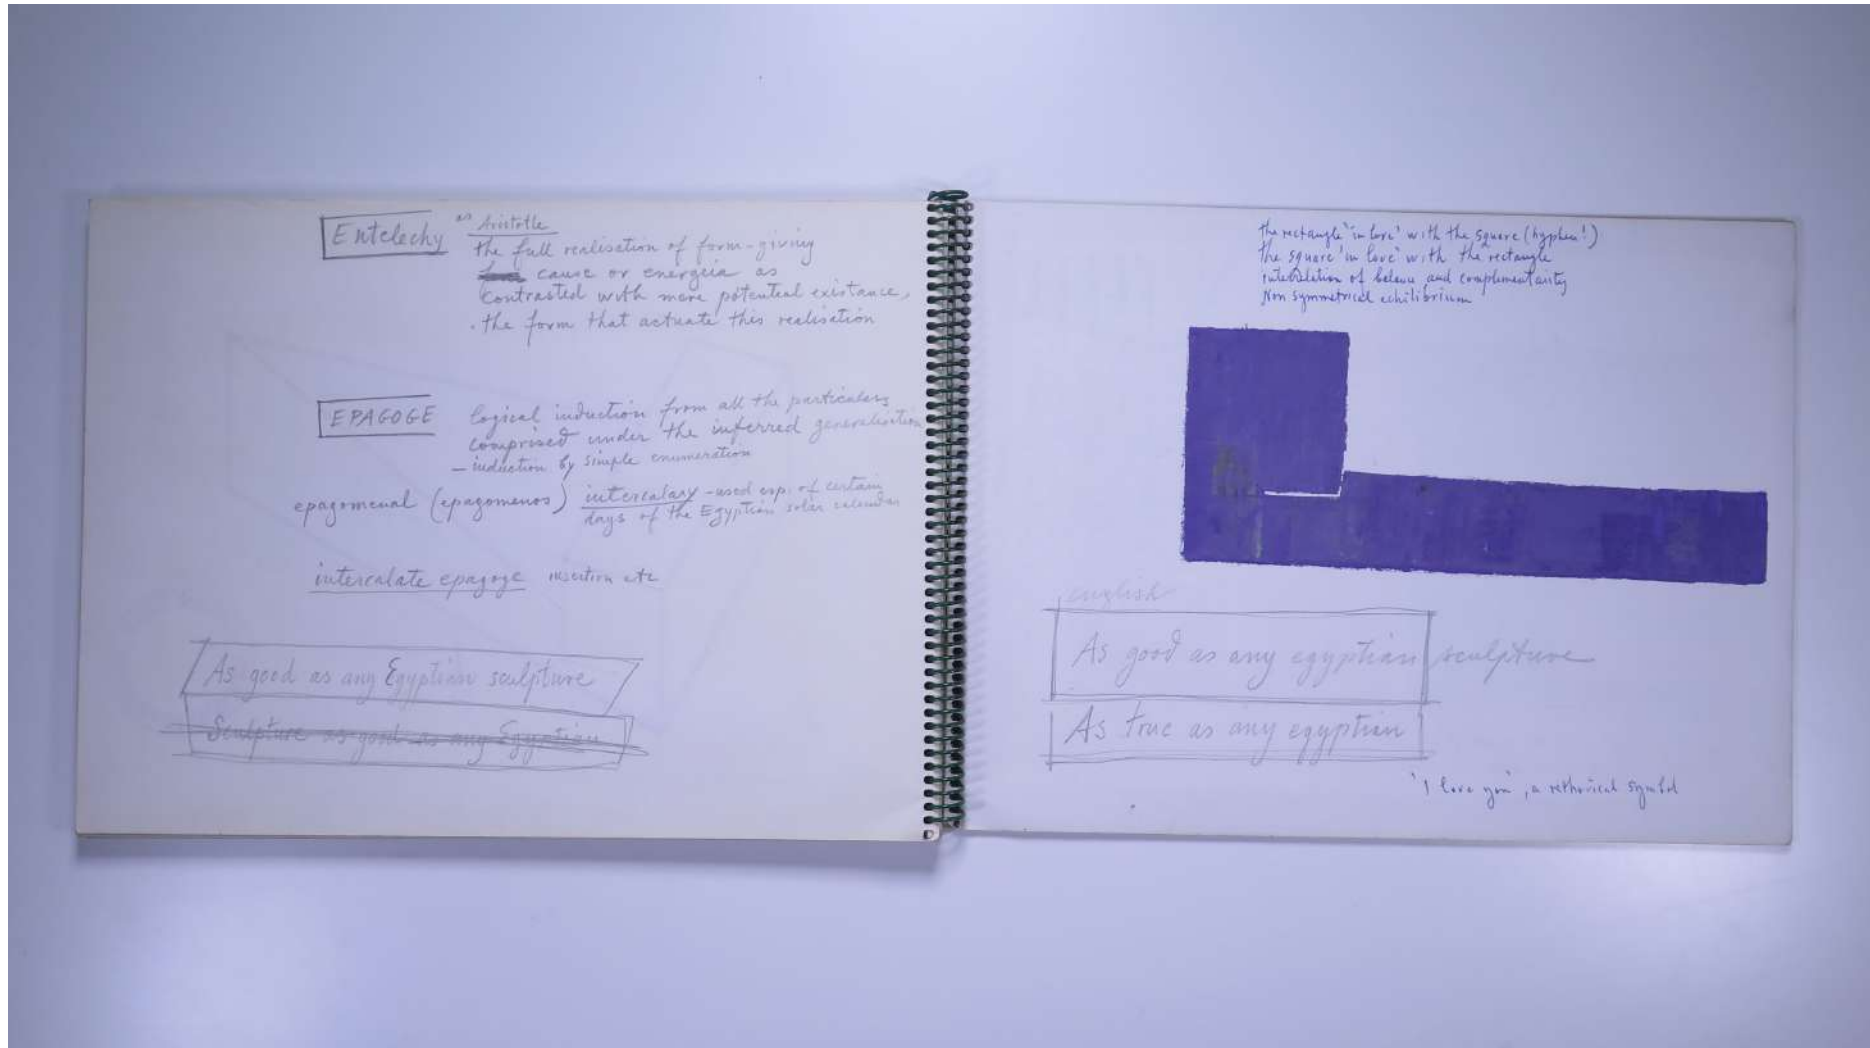 Entelechy as Aristotle
the full realisation of form-giving
cause or energeia as
contrasted with mere potential existance,
. the form that actuate this realisation
EPAGOGE logical induction from all the particulars
comprised under the inferred generalisation
– induction by simple enumeration
epagomenal (epagomenos) intercalary - used esp. of certain
days of the Egyptian solar calendar
intercalate epagoge insertion etc
As good as any Egyptian sculpture
Sculpture as good as any Egyptian
the rectangle 'in love' with the square (hyphen!)
the square 'in love' with the rectangle
interrelation of balance and complementarity
Non symmetrical echilibrium
english
As good as any egyptian sculpture
As true as any egyptian
'I love you', a rethorical symbol